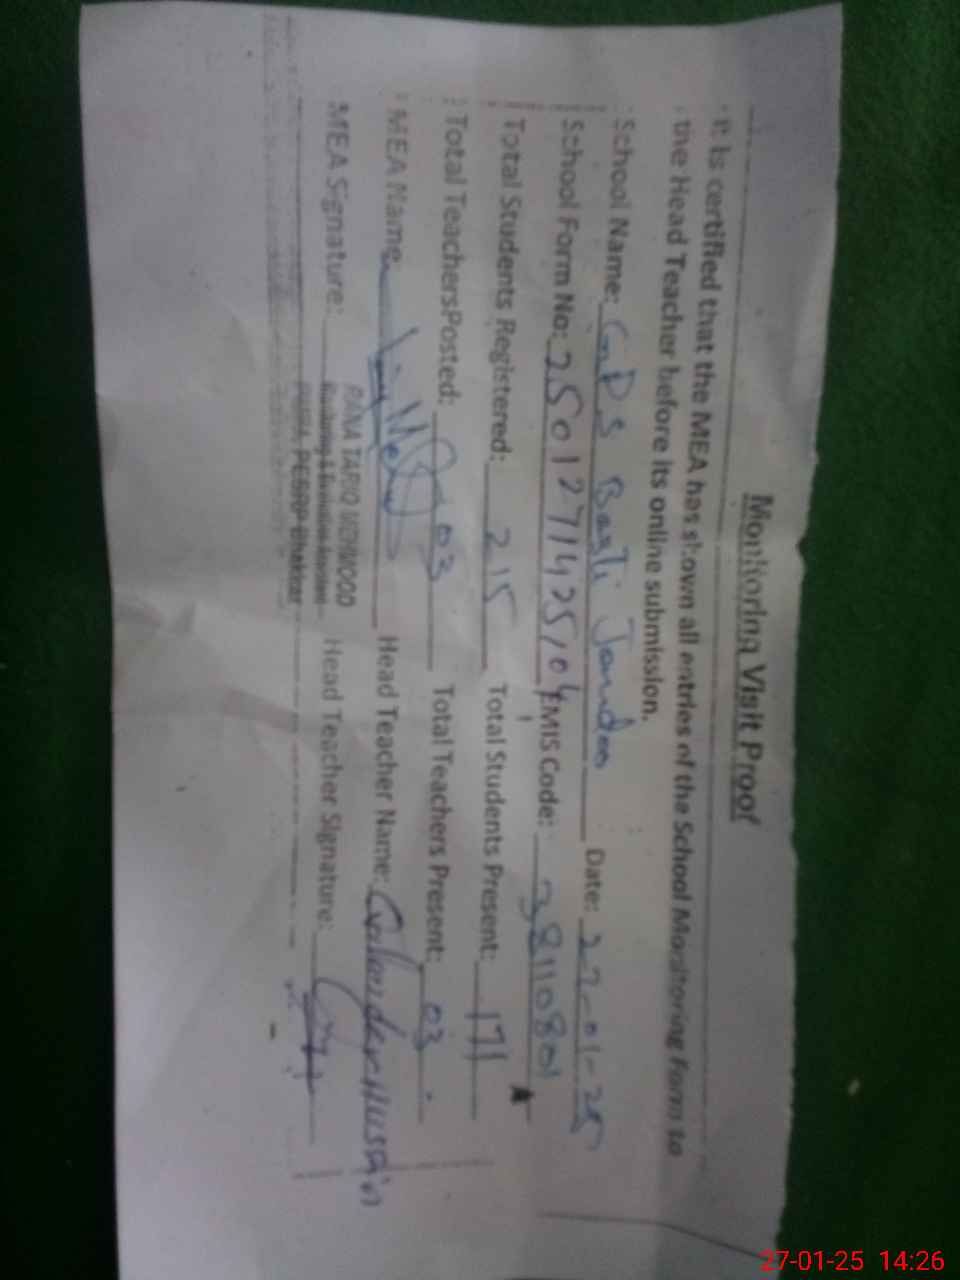 Monitoring Visit Proof
It is certified that the MEA has shown all entries of the School Monitoring Form to
the Head Teacher before its online submission.
School Name: GPS Basti Jandan Date: 27-01-25
School Form No: 2501271425104 EMIS Code: 38110801
Total Students Registered: 215 Total Students Present: 171
Total TeachersPosted: 03 Total Teachers Present: 03
MEA Name: Head Teacher Name: Qalander Hussain
MEA Signature: RANA TARIQ MEHMOOD Head Teacher Signature:
Monitoring & Evaluation Assistant
Bhakkar
27-01-25 14:26